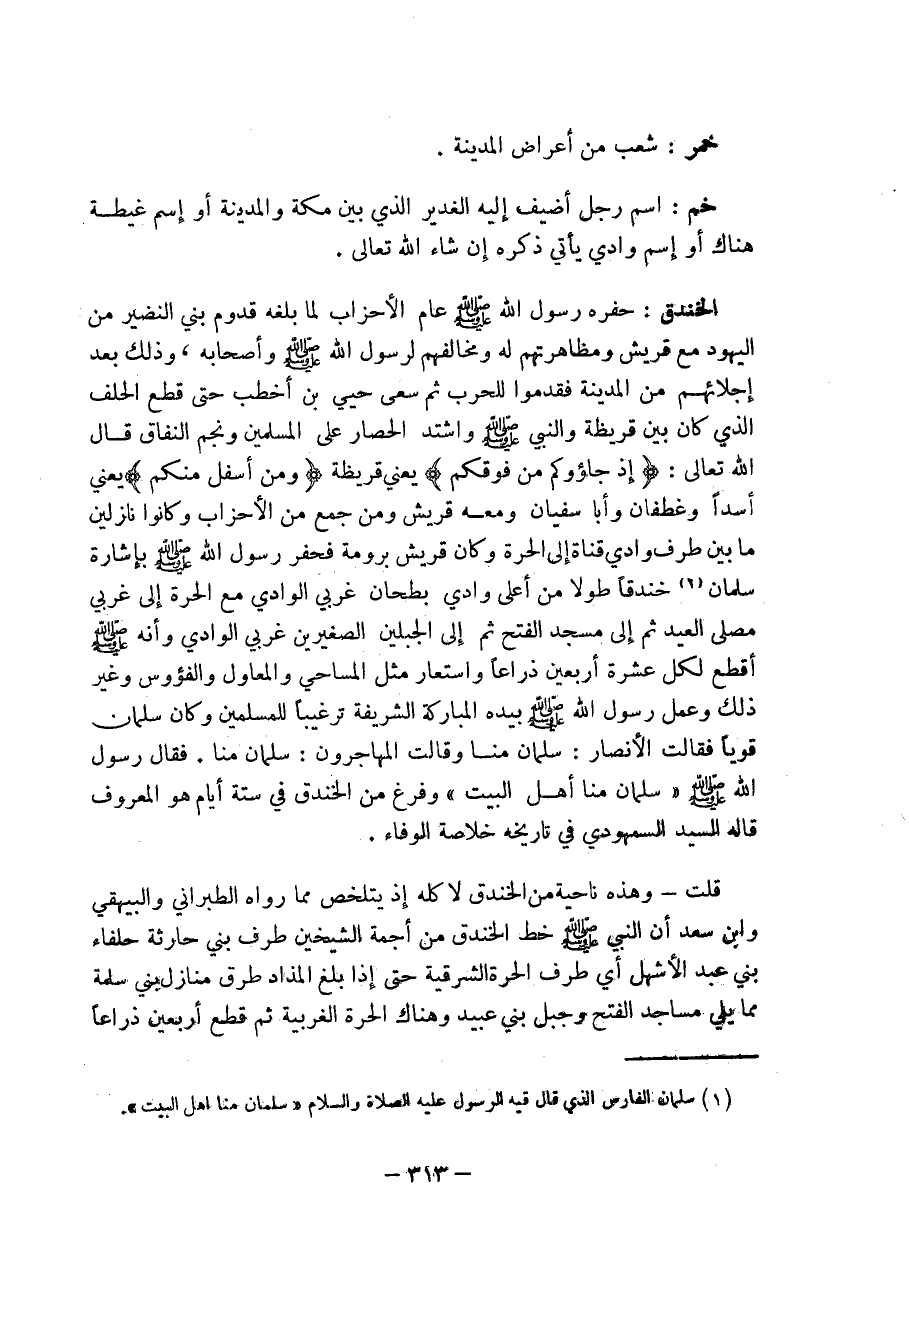 خمر : شعب من أعراض المدينة .
خم : اسم رجل أضيف إليه الغدير الذي بين مكة والمدينة أو إسم غيطة
هناك أو إسم وادي يأتي ذكره إن شاء الله تعالى .
الخندق : حفره رسول الله ﷺ عام الأحزاب لما بلغه قدوم بني النضير من
اليهود مع قريش ومظاهرتهم له ومخالفهم لرسول الله ﷺ وأصحابه ، وذلك بعد
إجلائهم من المدينة فقدموا للحرب ثم سعى حيي بن أخطب حتى قطع الحلف
الذي كان بين قريظة والنبي ﷺ واشتد الحصار على المسلمين ونجم النفاق قال
الله تعالى : ﴿ إذ جاؤوكم من فوقكم ﴾ يعني قريظة ﴿ ومن أسفل منكم ﴾ يعني
أسداً وغطفان وأبا سفيان ومعه قريش ومن جمع من الأحزاب وكانوا نازلين
ما بين طرف وادي قناة إلى الحرة وكان قريش برومة فحفر رسول الله ﷺ بإشارة
سلمان (١) خندقاً طولا من أعلى وادي بطحان غربي الوادي مع الحرة إلى غربي
مصلى العيد ثم إلى مسجد الفتح ثم إلى الجبلين الصغيرين غربي الوادي وأنه ﷺ
أقطع لكل عشرة أربعين ذراعاً واستعار مثل المساحي والمعاول والفؤوس وغير
ذلك وعمل رسول الله ﷺ بيده المباركة الشريفة ترغيباً للمسلمين وكان سلمان
قوياً فقالت الأنصار : سلمان منا وقالت المهاجرون : سلمان منا . فقال رسول
الله ﷺ « سلمان منا أهل البيت » وفرغ من الخندق في ستة أيام هو المعروف
قاله السيد السمهودي في تاريخه خلاصة الوفاء .
قلت – وهذه ناحية من الخندق لا كله إذ يتلخص مما رواه الطبراني والبيهقي
وابن سعد أن النبي ﷺ خط الخندق من أجمة الشيخين طرف بني حارثة حلفاء
بني عبد الأشهل أي طرف الحرة الشرقية حتى إذا بلغ المذاد طرق منازل بني سلمة
مما يلي مساجد الفتح وجبل بني عبيد وهناك الحرة الغربية ثم قطع أربعين ذراعاً
(١) سلمان الفارس الذي قال فيه الرسول عليه الصلاة والسلام « سلمان منا اهل البيت ».
– ٣١٣ –